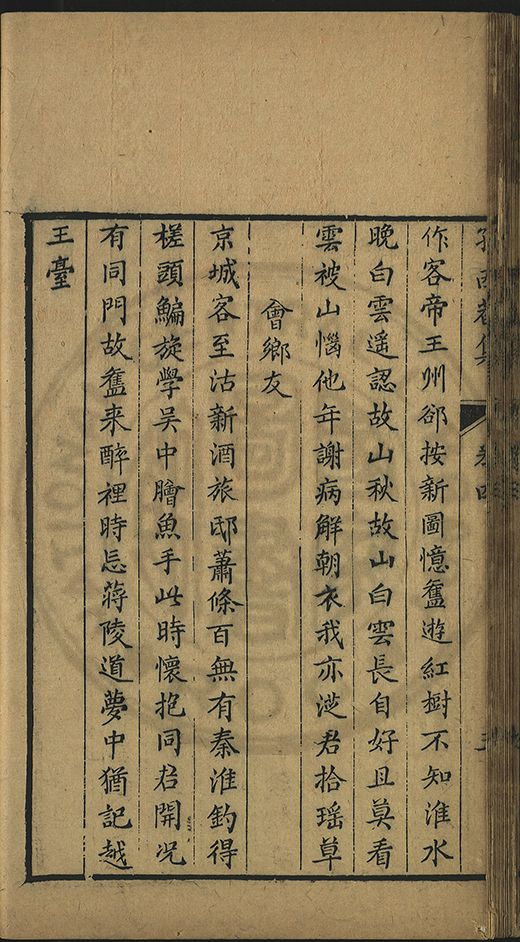 作客帝王州郤按新圖憶舊遊紅樹不知淮水
晚白雲遥認故山秋故山白雲長自好且莫看
雲被山惱他年謝病解朝衣我亦從君拾瑶草
會鄉友
京城客至沽新酒旅邸蕭條百無有秦淮釣得
槎頭鯿旋學吳中膾魚手此時懷抱同君開况
有同門故舊来醉裡時忘蔣陵道夢中猶記越
王臺